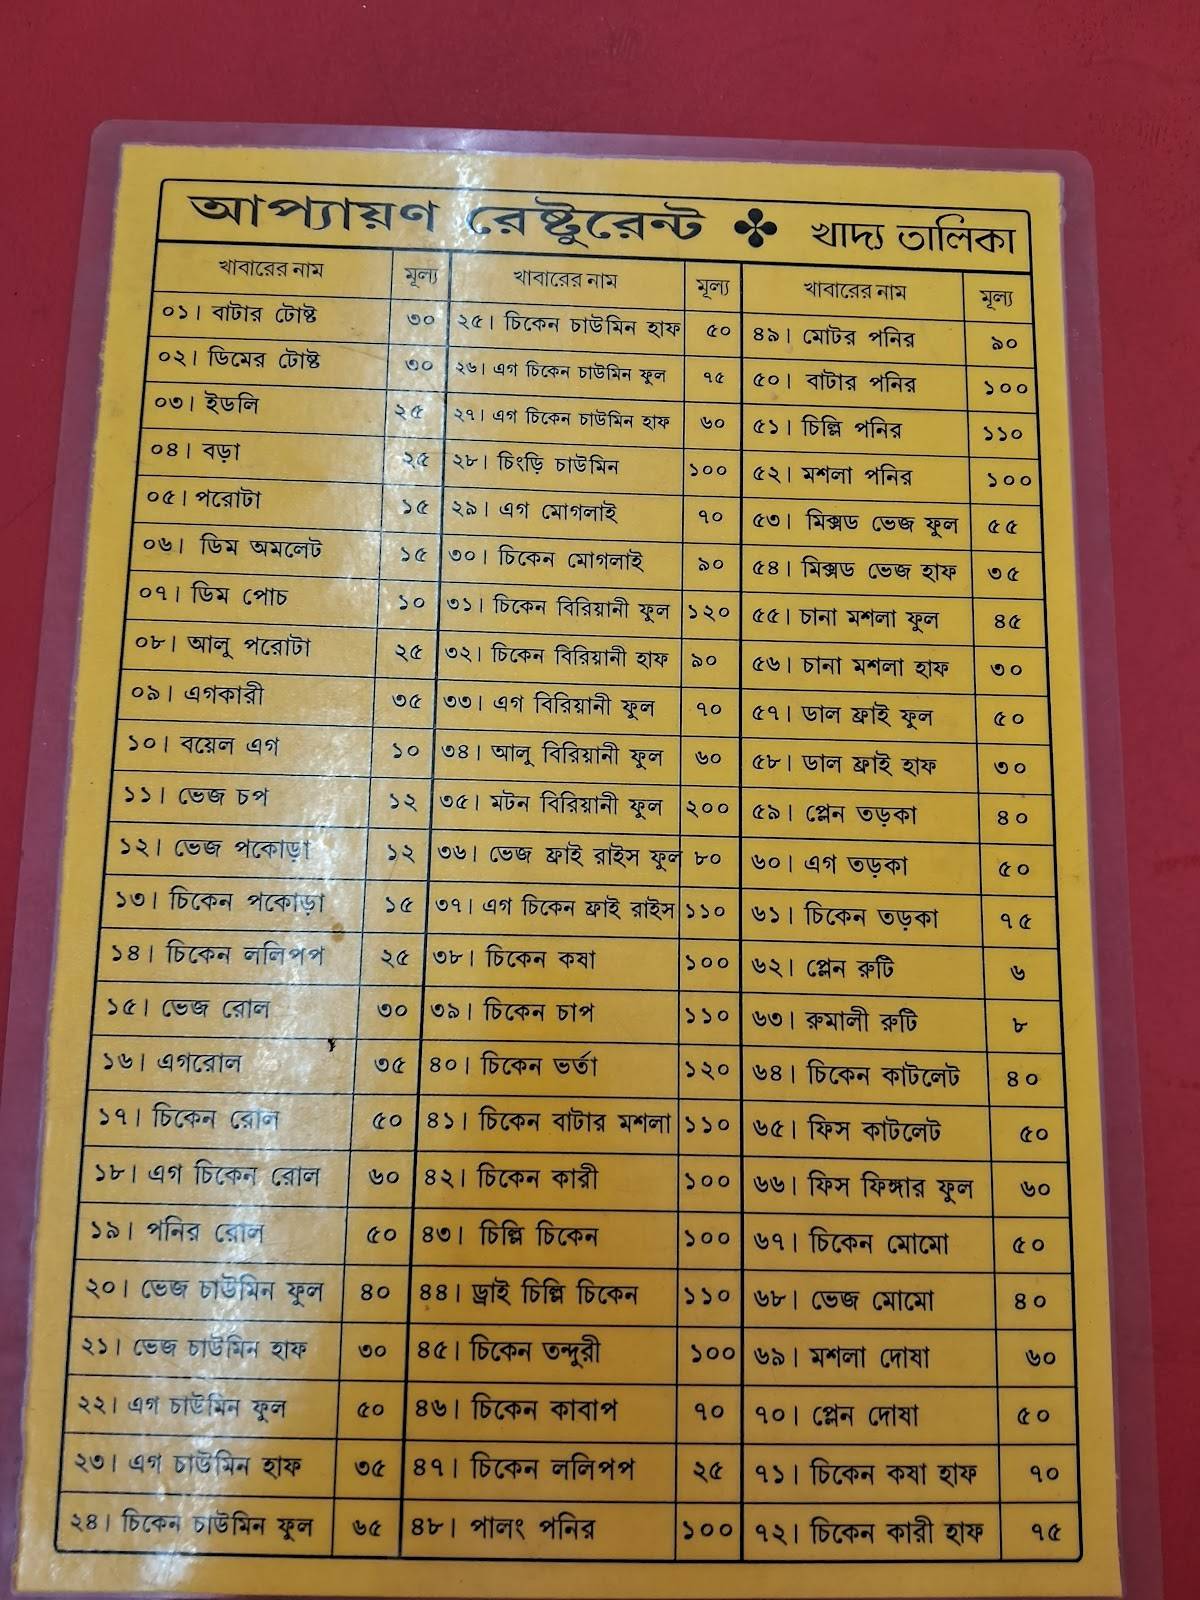 আপ্যায়ণ রেষ্টুরেন্ট ✤ খাদ্য তালিকা
খাবারের নাম মূল্য
০১। বাটার টোষ্ট ৩০
০২। ডিমের টোষ্ট ৩০
০৩। ইডলি ২৫
০৪। বড়া ২৫
০৫। পরোটা ১৫
০৬। ডিম অমলেট ১৫
০৭। ডিম পোচ ১০
০৮। আলু পরোটা ২৫
০৯। এগকারী ৩৫
১০। বয়েল এগ ১০
১১। ভেজ চপ ১২
১২। ভেজ পকোড়া ১২
১৩। চিকেন পকোড়া ১৫
১৪। চিকেন ললিপপ ২৫
১৫। ভেজ রোল ৩০
১৬। এগরোল ৩৫
১৭। চিকেন রোল ৫০
১৮। এগ চিকেন রোল ৬০
১৯। পনির রোল ৫০
২০। ভেজ চাউমিন ফুল ৪০
২১। ভেজ চাউমিন হাফ ৩০
২২। এগ চাউমিন ফুল ৫০
২৩। এগ চাউমিন হাফ ৩৫
২৪। চিকেন চাউমিন ফুল ৬৫
খাবারের নাম মূল্য
২৫। চিকেন চাউমিন হাফ ৫০
২৬। এগ চিকেন চাউমিন ফুল ৭৫
২৭। এগ চিকেন চাউমিন হাফ ৬০
২৮। চিংড়ি চাউমিন ১০০
২৯। এগ মোগলাই ৭০
৩০। চিকেন মোগলাই ৯০
৩১। চিকেন বিরিয়ানী ফুল ১২০
৩২। চিকেন বিরিয়ানী হাফ ৯০
৩৩। এগ বিরিয়ানী ফুল ৭০
৩৪। আলু বিরিয়ানী ফুল ৬০
৩৫। মটন বিরিয়ানী ফুল ২০০
৩৬। ভেজ ফ্রাই রাইস ফুল ৮০
৩৭। এগ চিকেন ফ্রাই রাইস ১১০
৩৮। চিকেন কষা ১০০
৩৯। চিকেন চাপ ১১০
৪০। চিকেন ভর্তা ১২০
৪১। চিকেন বাটার মশলা ১১০
৪২। চিকেন কারী ১০০
৪৩। চিল্লি চিকেন ১০০
৪৪। ড্রাই চিল্লি চিকেন ১১০
৪৫। চিকেন তন্দুরী ১০০
৪৬। চিকেন কাবাপ ৭০
৪৭। চিকেন ললিপপ ২৫
৪৮। পালং পনির ১০০
খাবারের নাম মূল্য
৪৯। মোটর পনির ৯০
৫০। বাটার পনির ১০০
৫১। চিল্লি পনির ১১০
৫২। মশলা পনির ১০০
৫৩। মিক্সড ভেজ ফুল ৫৫
৫৪। মিক্সড ভেজ হাফ ৩৫
৫৫। চানা মশলা ফুল ৪৫
৫৬। চানা মশলা হাফ ৩০
৫৭। ডাল ফ্রাই ফুল ৫০
৫৮। ডাল ফ্রাই হাফ ৩০
৫৯। প্লেন তড়কা ৪০
৬০। এগ তড়কা ৫০
৬১। চিকেন তড়কা ৭৫
৬২। প্লেন রুটি ৬
৬৩। রুমালী রুটি ৮
৬৪। চিকেন কাটলেট ৪০
৬৫। ফিস কাটলেট ৫০
৬৬। ফিস ফিঙ্গার ফুল ৬০
৬৭। চিকেন মোমো ৫০
৬৮। ভেজ মোমো ৪০
৬৯। মশলা দোষা ৬০
৭০। প্লেন দোষা ৫০
৭১। চিকেন কষা হাফ ৭০
৭২। চিকেন কারী হাফ ৭৫